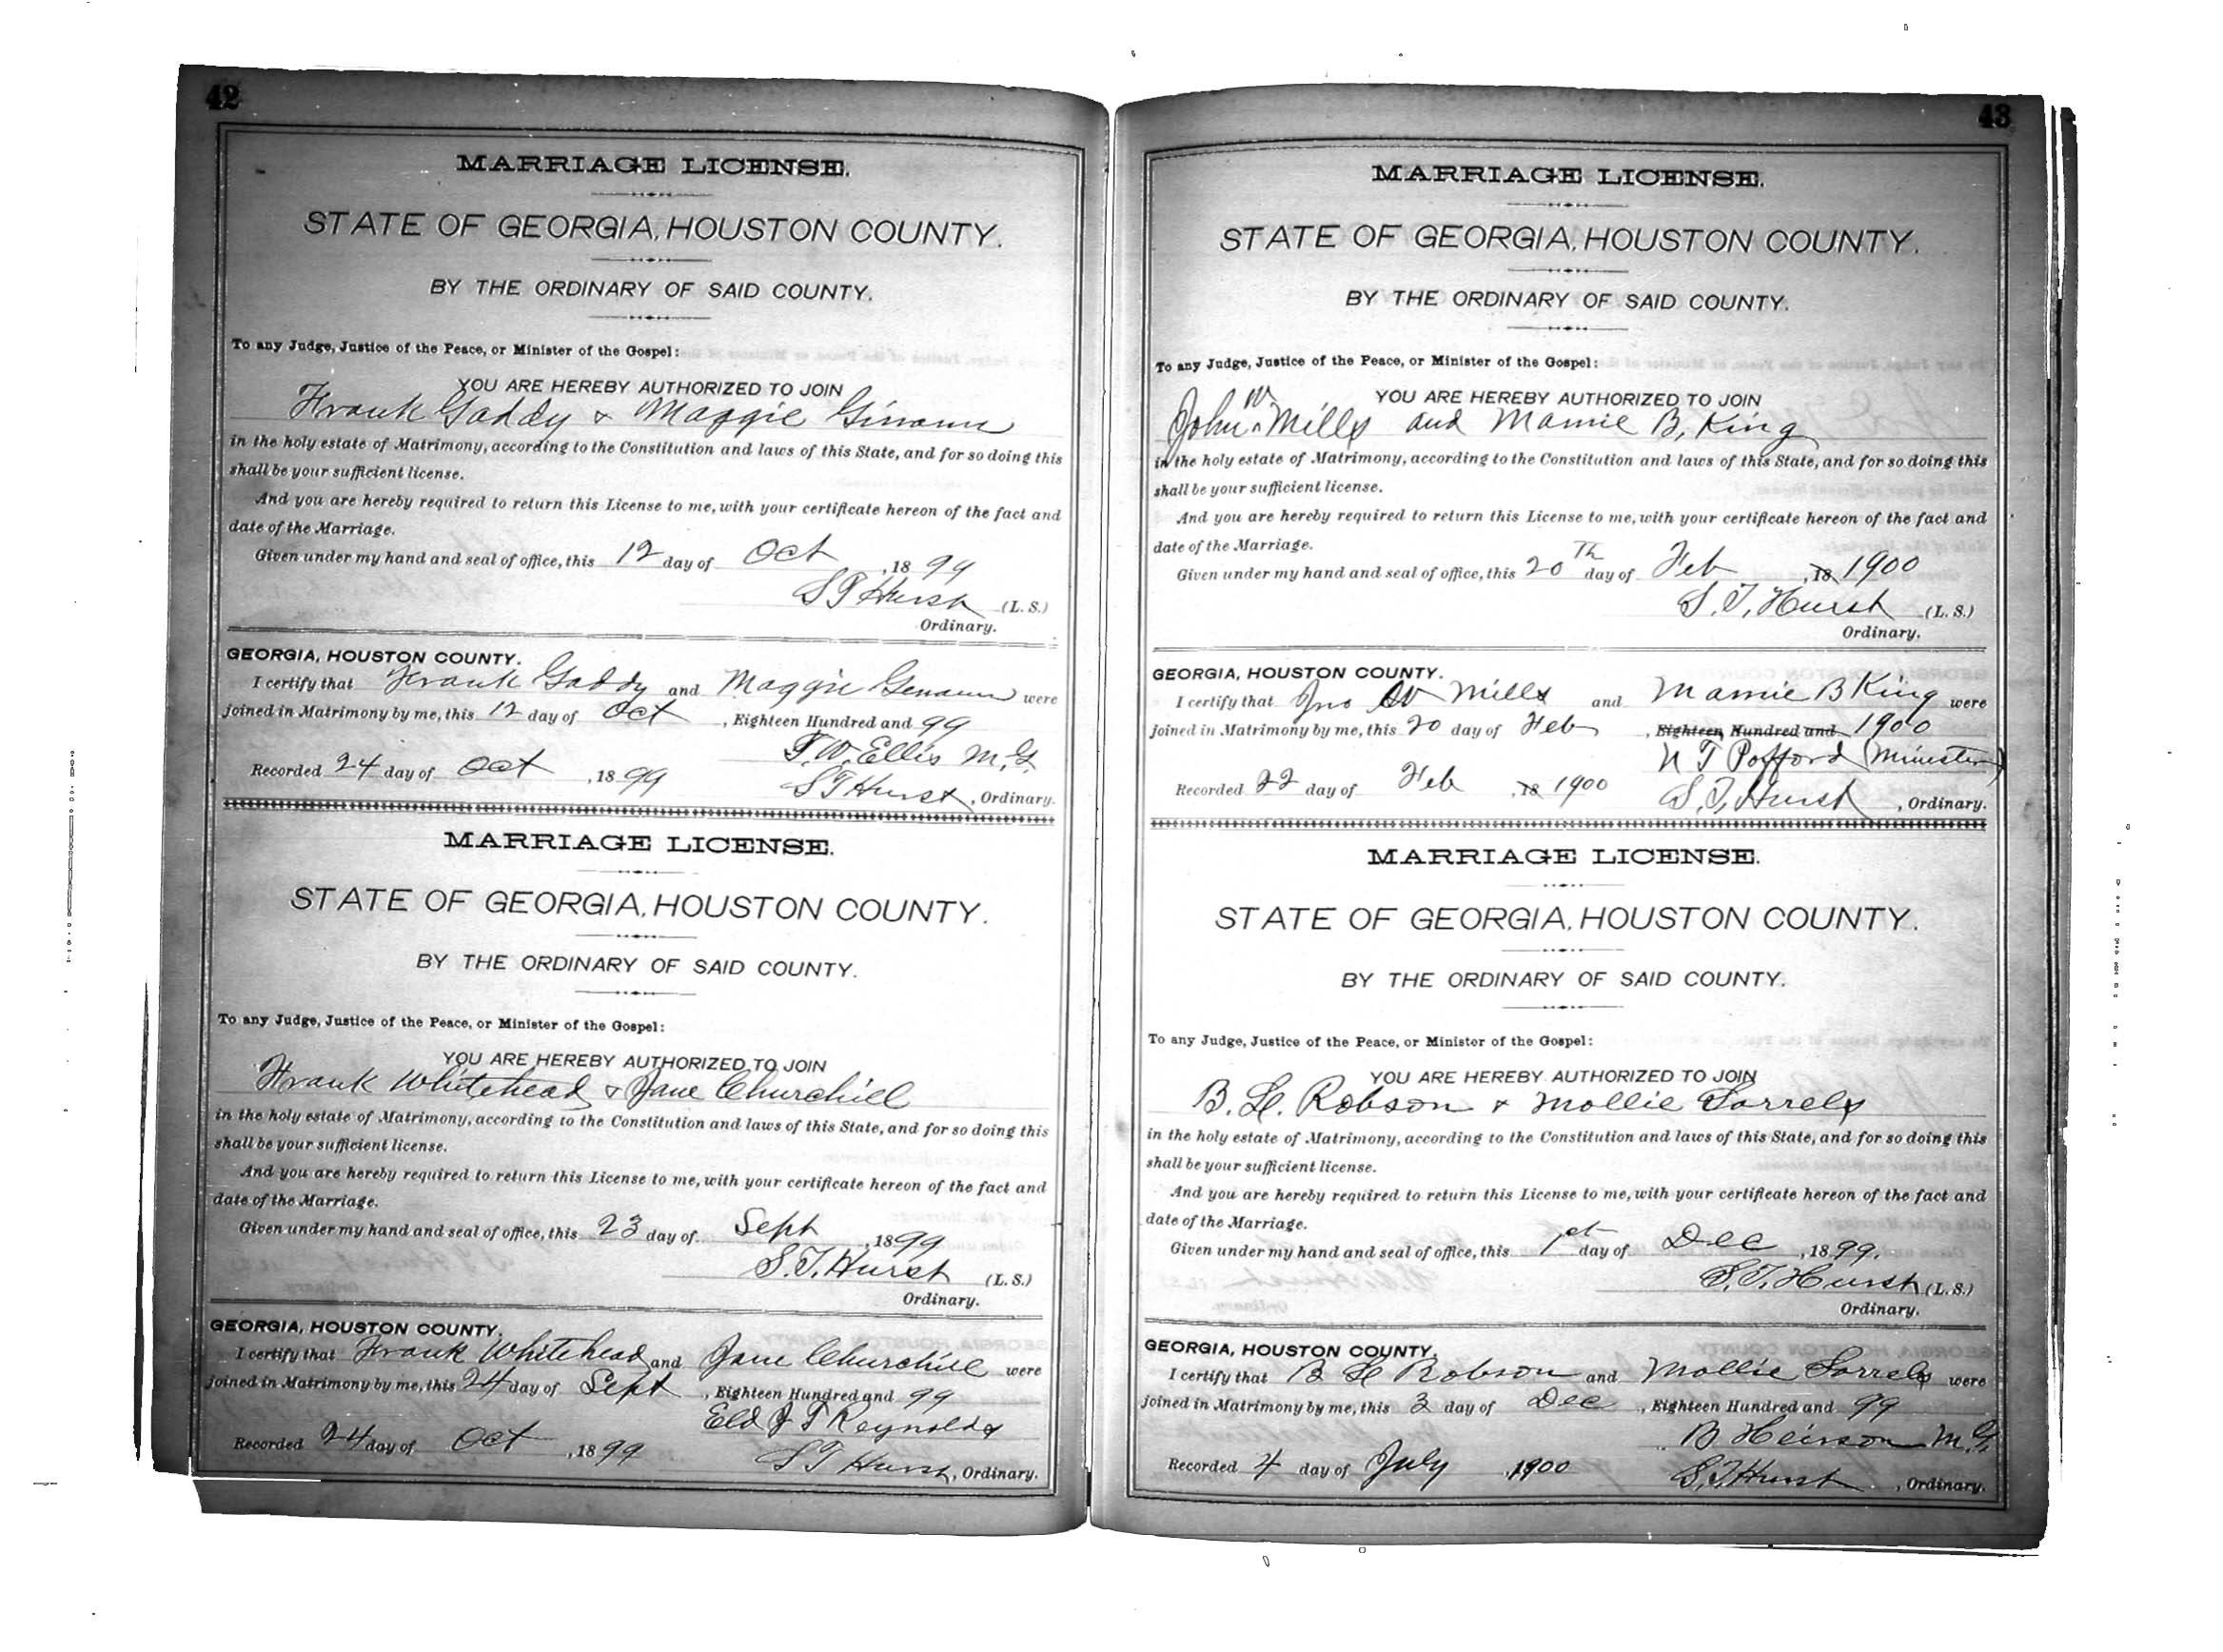 42
MARRIAGE LICENSE.
STATE OF GEORGIA, HOUSTON COUNTY.
BY THE ORDINARY OF SAID COUNTY.
To any Judge, Justice of the Peace, or Minister of the Gospel:
YOU ARE HEREBY AUTHORIZED TO JOIN
Frank Gaddy & Maggie
in the holy estate of Matrimony, according to the Constitution and laws of this State, and for so doing this
shall be your sufficient license.
And you are hereby required to return this License to me, with your certificate hereon of the fact and
date of the Marriage.
Given under my hand and seal of office, this 12 day of Oct , 18 99
S T Hurst (L. S.)
Ordinary.
GEORGIA, HOUSTON COUNTY.
I certify that Frank Gaddy and Maggie were
joined in Matrimony by me, this 12 day of Oct , Eighteen Hundred and 99
T. W. Ellis M. G.
Recorded 24 day of Oct , 18 99
S T Hurst , Ordinary.
MARRIAGE LICENSE.
STATE OF GEORGIA, HOUSTON COUNTY.
BY THE ORDINARY OF SAID COUNTY.
To any Judge, Justice of the Peace, or Minister of the Gospel:
YOU ARE HEREBY AUTHORIZED TO JOIN
Frank Whitehead & Jane Churchill
in the holy estate of Matrimony, according to the Constitution and laws of this State, and for so doing this
shall be your sufficient license.
And you are hereby required to return this License to me, with your certificate hereon of the fact and
date of the Marriage.
Given under my hand and seal of office, this 23 day of Sept , 1899
S. T. Hurst (L. S.)
Ordinary.
GEORGIA, HOUSTON COUNTY.
I certify that Frank Whitehead and Jane Churchill were
joined in Matrimony by me, this 24 day of Sept , Eighteen Hundred and 99
Eld J T Reynolds
Recorded 24 day of Oct , 18 99
S T Hurst , Ordinary.
43
MARRIAGE LICENSE.
STATE OF GEORGIA, HOUSTON COUNTY.
BY THE ORDINARY OF SAID COUNTY.
To any Judge, Justice of the Peace, or Minister of the Gospel:
YOU ARE HEREBY AUTHORIZED TO JOIN
John W Mills and Mamie B. King
in the holy estate of Matrimony, according to the Constitution and laws of this State, and for so doing this
shall be your sufficient license.
And you are hereby required to return this License to me, with your certificate hereon of the fact and
date of the Marriage.
Given under my hand and seal of office, this 20th day of Feb , 18 1900
S. T. Hurst (L. S.)
Ordinary.
GEORGIA, HOUSTON COUNTY.
I certify that Jno W Mills and Mamie B King were
joined in Matrimony by me, this 20 day of Feb , Eighteen Hundred and 1900
(Minister)
Recorded 22 day of Feb , 18 1900
S. T. Hurst , Ordinary.
MARRIAGE LICENSE.
STATE OF GEORGIA, HOUSTON COUNTY.
BY THE ORDINARY OF SAID COUNTY.
To any Judge, Justice of the Peace, or Minister of the Gospel:
YOU ARE HEREBY AUTHORIZED TO JOIN
B. H. Robson & Mollie Sorrels
in the holy estate of Matrimony, according to the Constitution and laws of this State, and for so doing this
shall be your sufficient license.
And you are hereby required to return this License to me, with your certificate hereon of the fact and
date of the Marriage.
Given under my hand and seal of office, this 1st day of Dec , 18 99.
S. T. Hurst (L. S.)
Ordinary.
GEORGIA, HOUSTON COUNTY.
I certify that B H Robson and Mollie Sorrels were
joined in Matrimony by me, this 3 day of Dec , Eighteen Hundred and 99
B M. G.
Recorded 4 day of July , 1900
S. T. Hurst , Ordinary.